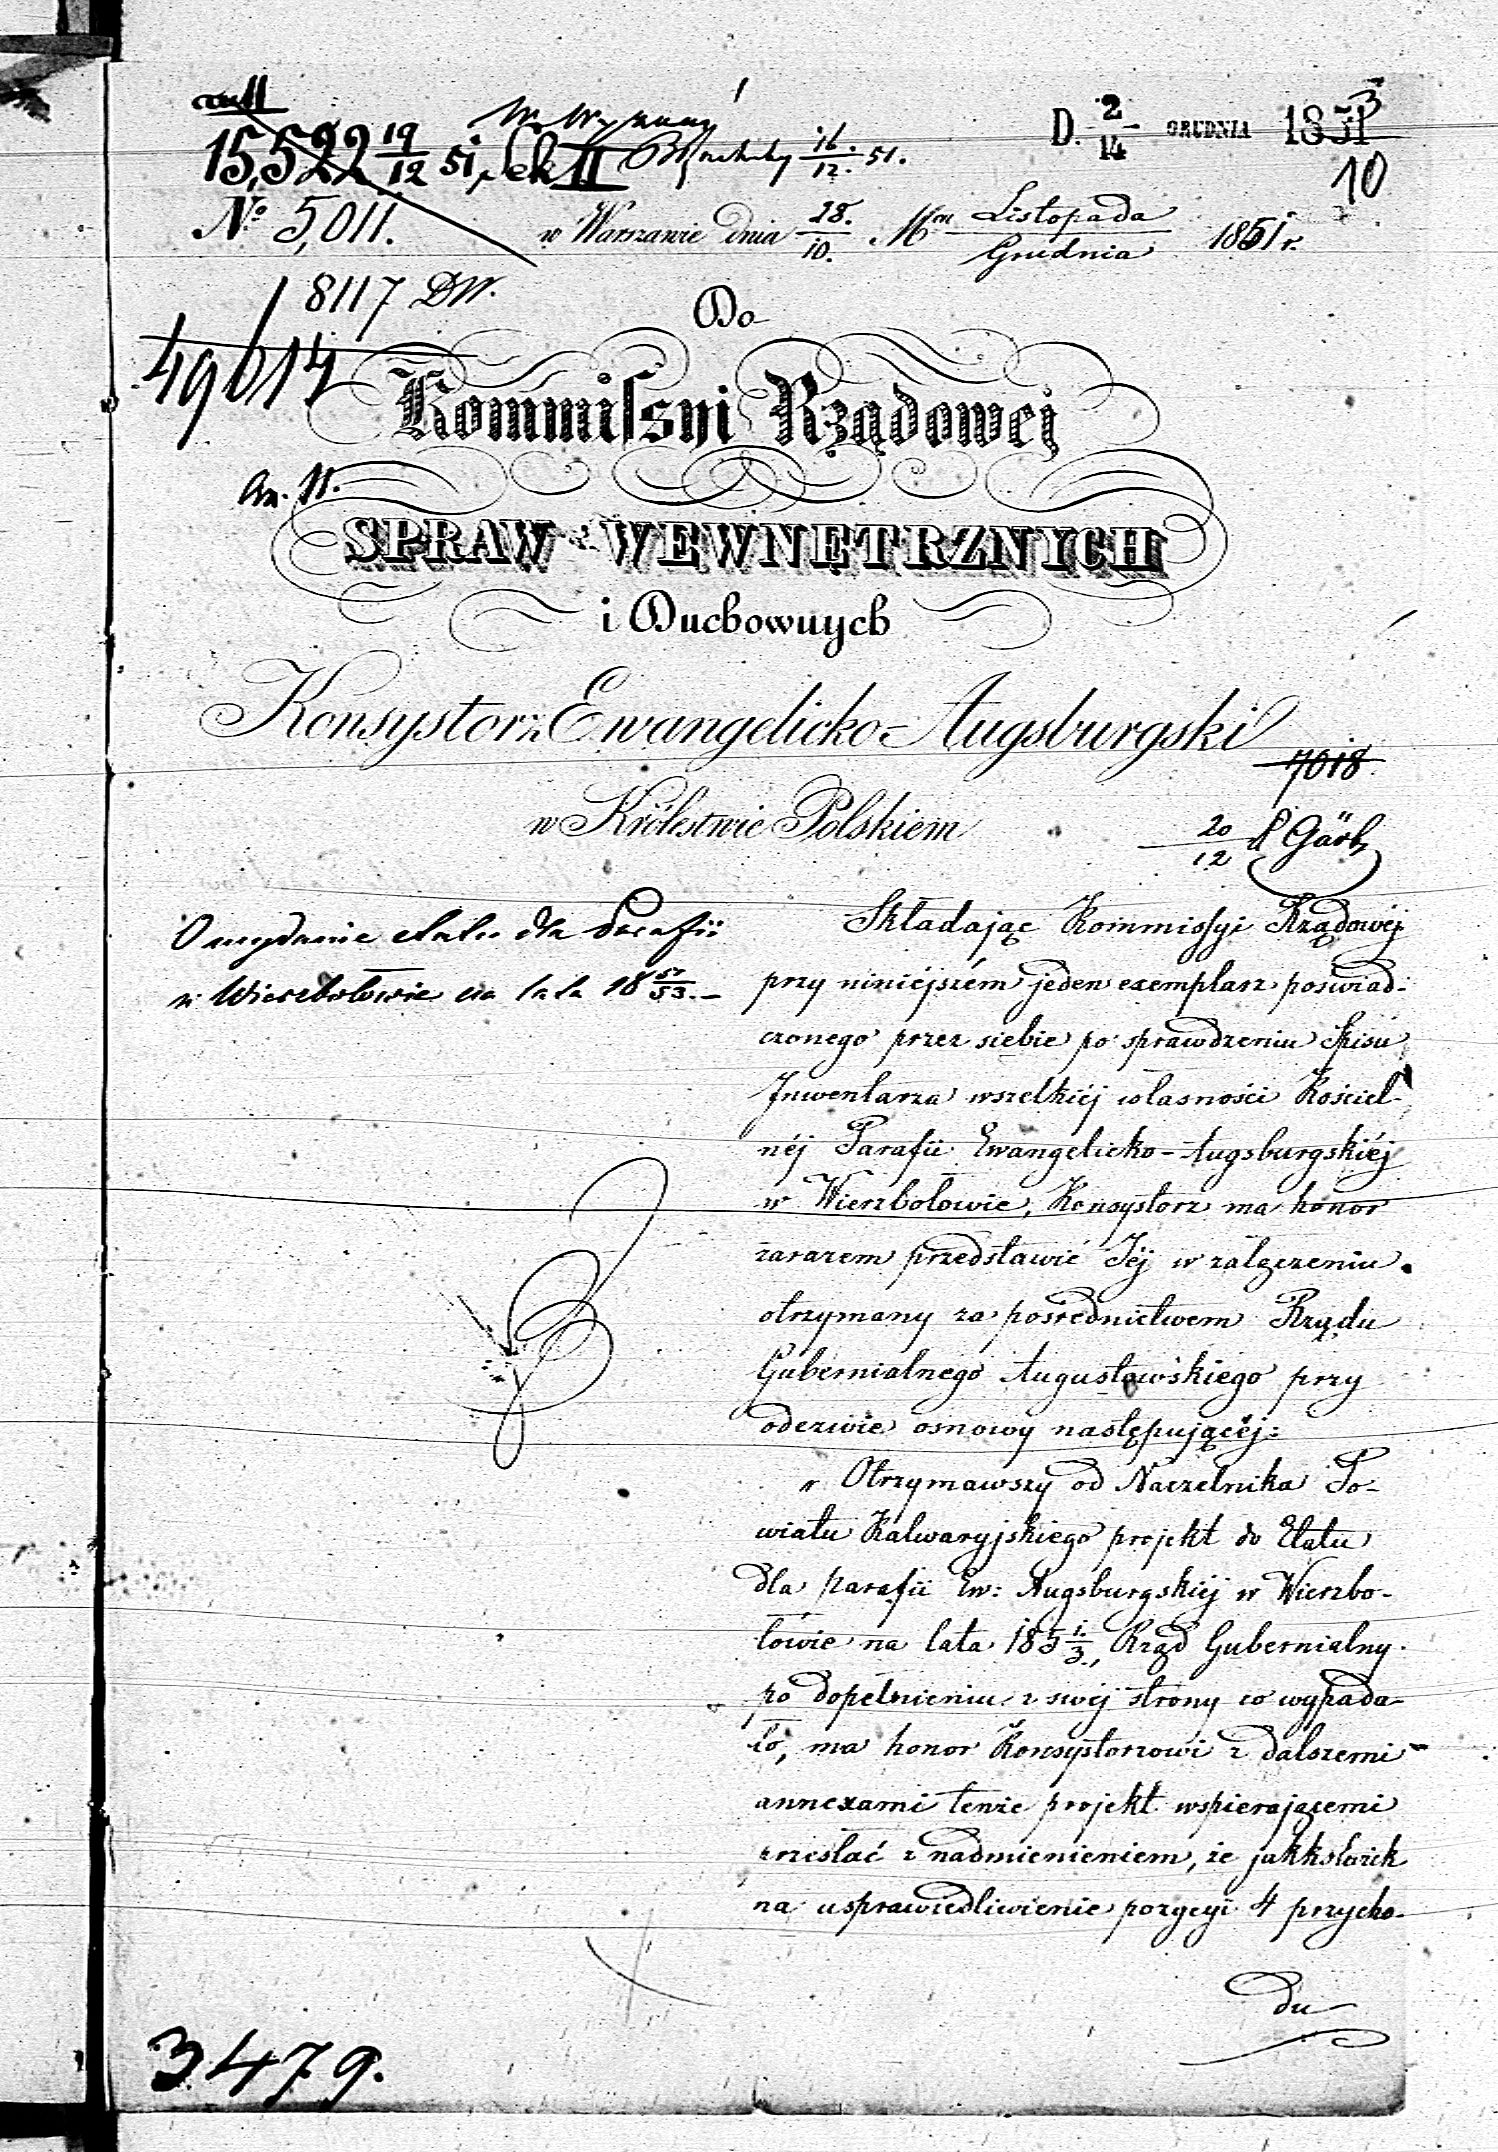 15,522 19/12 51, Sek II 16/12. 51.
D. 2/14 GRUDNIA 1851
3
10
No 5,011.
w Warszawie dnia 28./10. Mca Listopada/Grudnia 1851 r.
8117 DW.
49614
Do
Kommissyi Rządowej
an. 11.
SPRAW WEWNĘTRZNYCH
i Duchownych
Konsystorz Ewangelicko-Augsburgski
w Królestwie Polskiem
7018
20/12
O wydanie etatu dla Parafii
w Wierzbołowie na lata 18 51/53.
Składając Kommissyi Rządowéj
przy niniejszém jeden exemplarz poświad-
czonego przez siebie po sprawdzeniu Spisu
Inwentarza wszelkiéj własności Kościel-
néj Parafii Ewangelicko-Augsburgskiéj
w Wierzbołowie, Konsystorz ma honor
zarazem przedstawić Jéj w załączeniu
otrzymany za pośrednictwem Rządu
Gubernialnego Augustowskiego przy
odezwie osnowy następującéj:
„ Otrzymawszy od Naczelnika Po-
wiatu Kalwaryjskiego projekt do Etatu
dla parafii Ew: Augsburgskiéj w Wierzbo-
łowie na lata 185 1/3, Rząd Gubernialny
po dopełnieniu z swéj strony co wypada-
ło, ma honor Konsystorzowi z dalszemi
annexami tenże projekt wspierającemi
przesłać z nadmienieniem, że jakkolwiek
na usprawiedliwienie pozycyi 4 przycho-
du
3479.